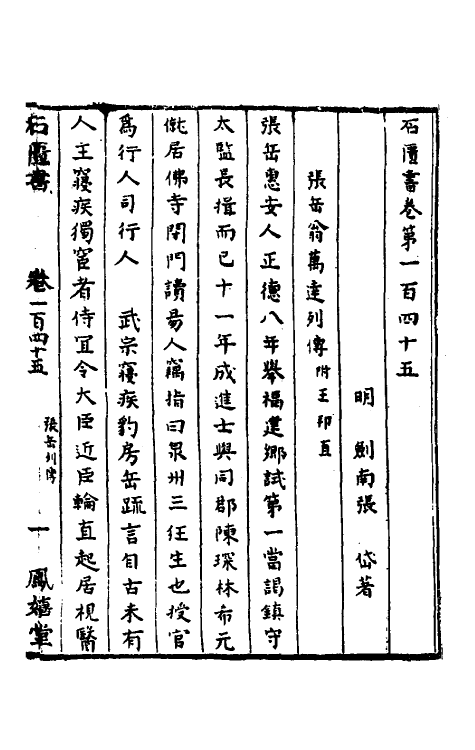 石匱書卷第一百四十五
明 劍南張 岱著
張岳翁萬達列傳附王卬直
張岳惠安人正德八年舉福建鄉試第一當謁鎮守
太監長揖而已十一年成進士與同郡陳琛林布元
僦居佛寺閉門讀易人竊指曰泉州三狂生也授官
爲行人司行人 武宗寢疾豹房岳疏言自古未有
人主寢疾獨宦者侍冝令大臣近臣輪直起居視醫
石匱書 卷一百四十五 張岳列傳 一 鳳嬉堂